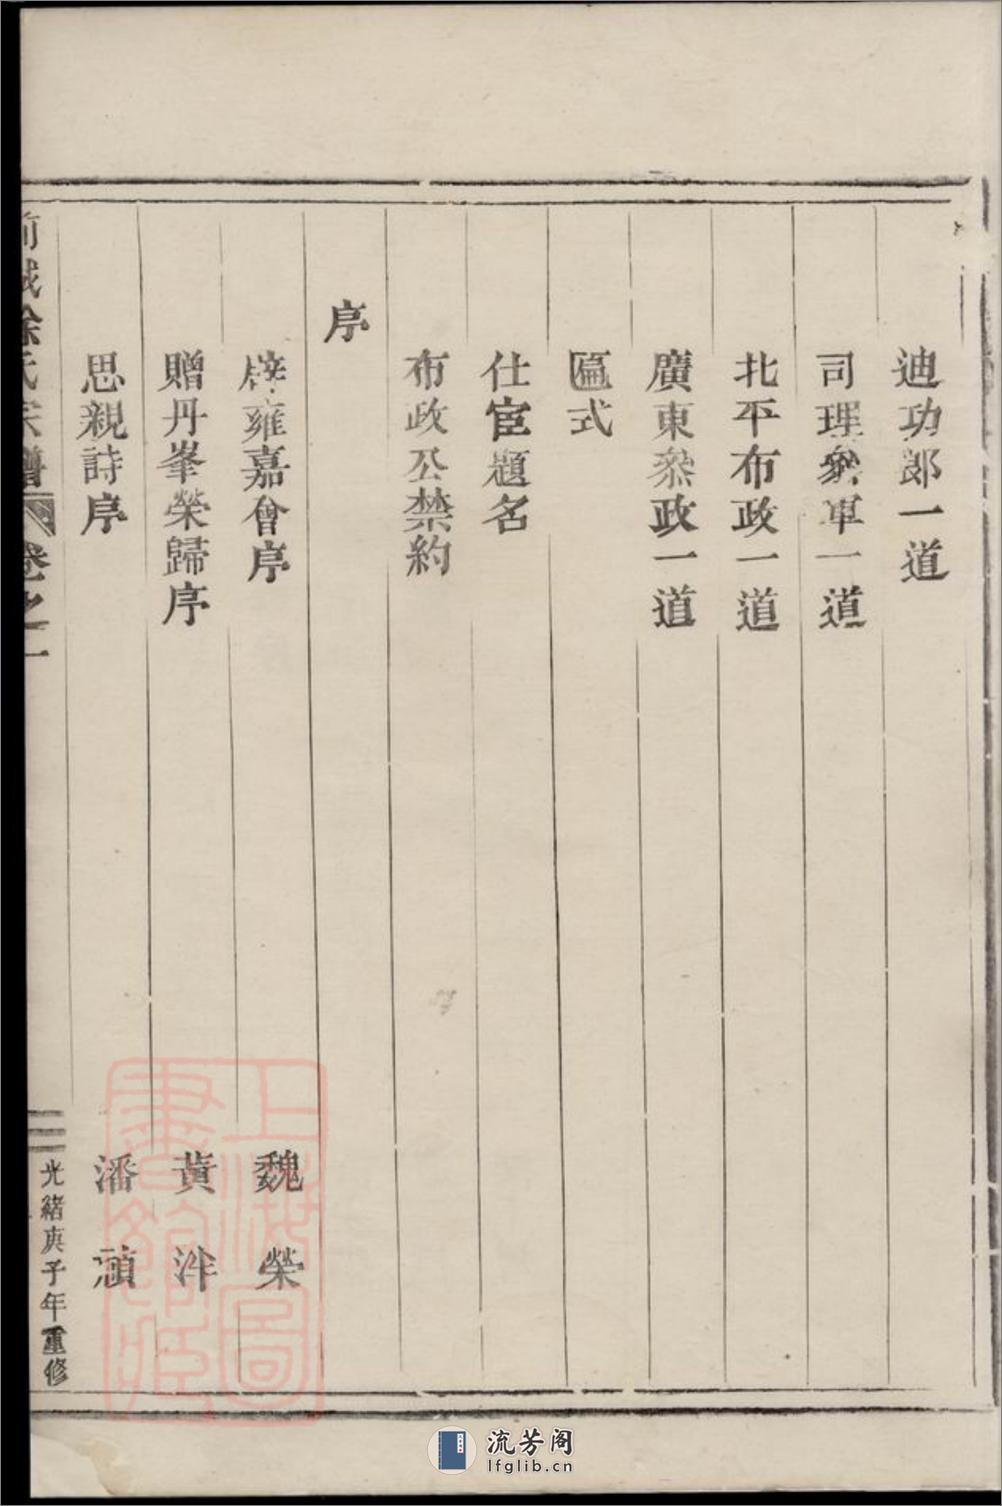 迪功郎一道
司理參軍一道
北平布政一道
廣東叅政一道
匾式
仕宦題名
布政公禁約
序
辟雍嘉會序 魏榮
贈丹峯榮歸序 黃泮
思親詩序 潘禎
徐氏宗譜 卷之一
光緒庚子年重修
上海圖書館藏
流芳阁
lfglib.cn